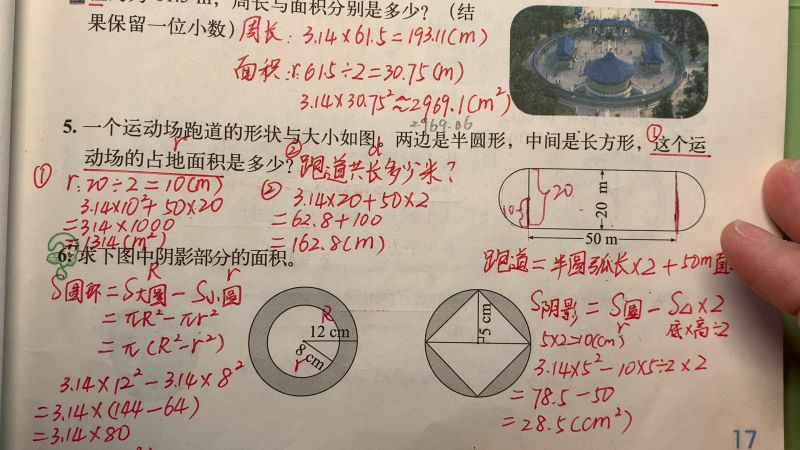 周长与面积分别是多少？（结
果保留一位小数）周长：3.14×61.5＝193.11(m)
面积：r:61.5÷2＝30.75(m)
3.14×30.75²≈2969.1(m²)
2969.06
5. 一个运动场跑道的形状与大小如图。两边是半圆形，中间是长方形，①这个运
动场的占地面积是多少？②跑道共长多少米？
① r:20÷2＝10(m)
3.14×10²＋50×20
＝314×1000
＝1314(m²)
② 3.14×20＋50×2
＝62.8＋100
＝162.8(m)
r
d
10
20
20 m
50 m
跑道＝半圆弧长×2＋50m直
6. 求下图中阴影部分的面积。
R r
S圆环＝S大圆－S小圆
＝πR²－πr²
＝π(R²－r²)
3.14×12²－3.14×8²
＝3.14×(144－64)
＝3.14×80
R
12 cm
8 cm
r
5 cm
S阴影＝S圆－S△×2
底×高÷2
5×2＝10(cm)
r
3.14×5²－10×5÷2×2
＝78.5－50
＝28.5(cm²)
17